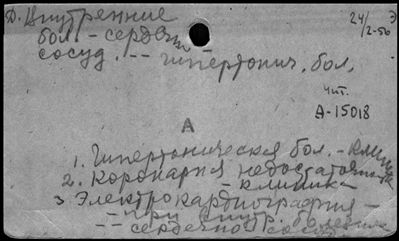 Д. Внутренние
бол. - сердечн
сосуд. -- гипертонич. бол.
24/2-56
Э
чит.
А-15018
А
1. Гипертоническая бол. - клиника
2. Коронарная недостаточн
- клиника
3 Электрокардиография -
-- при внутр. болезнях
-- сердечно сосуд